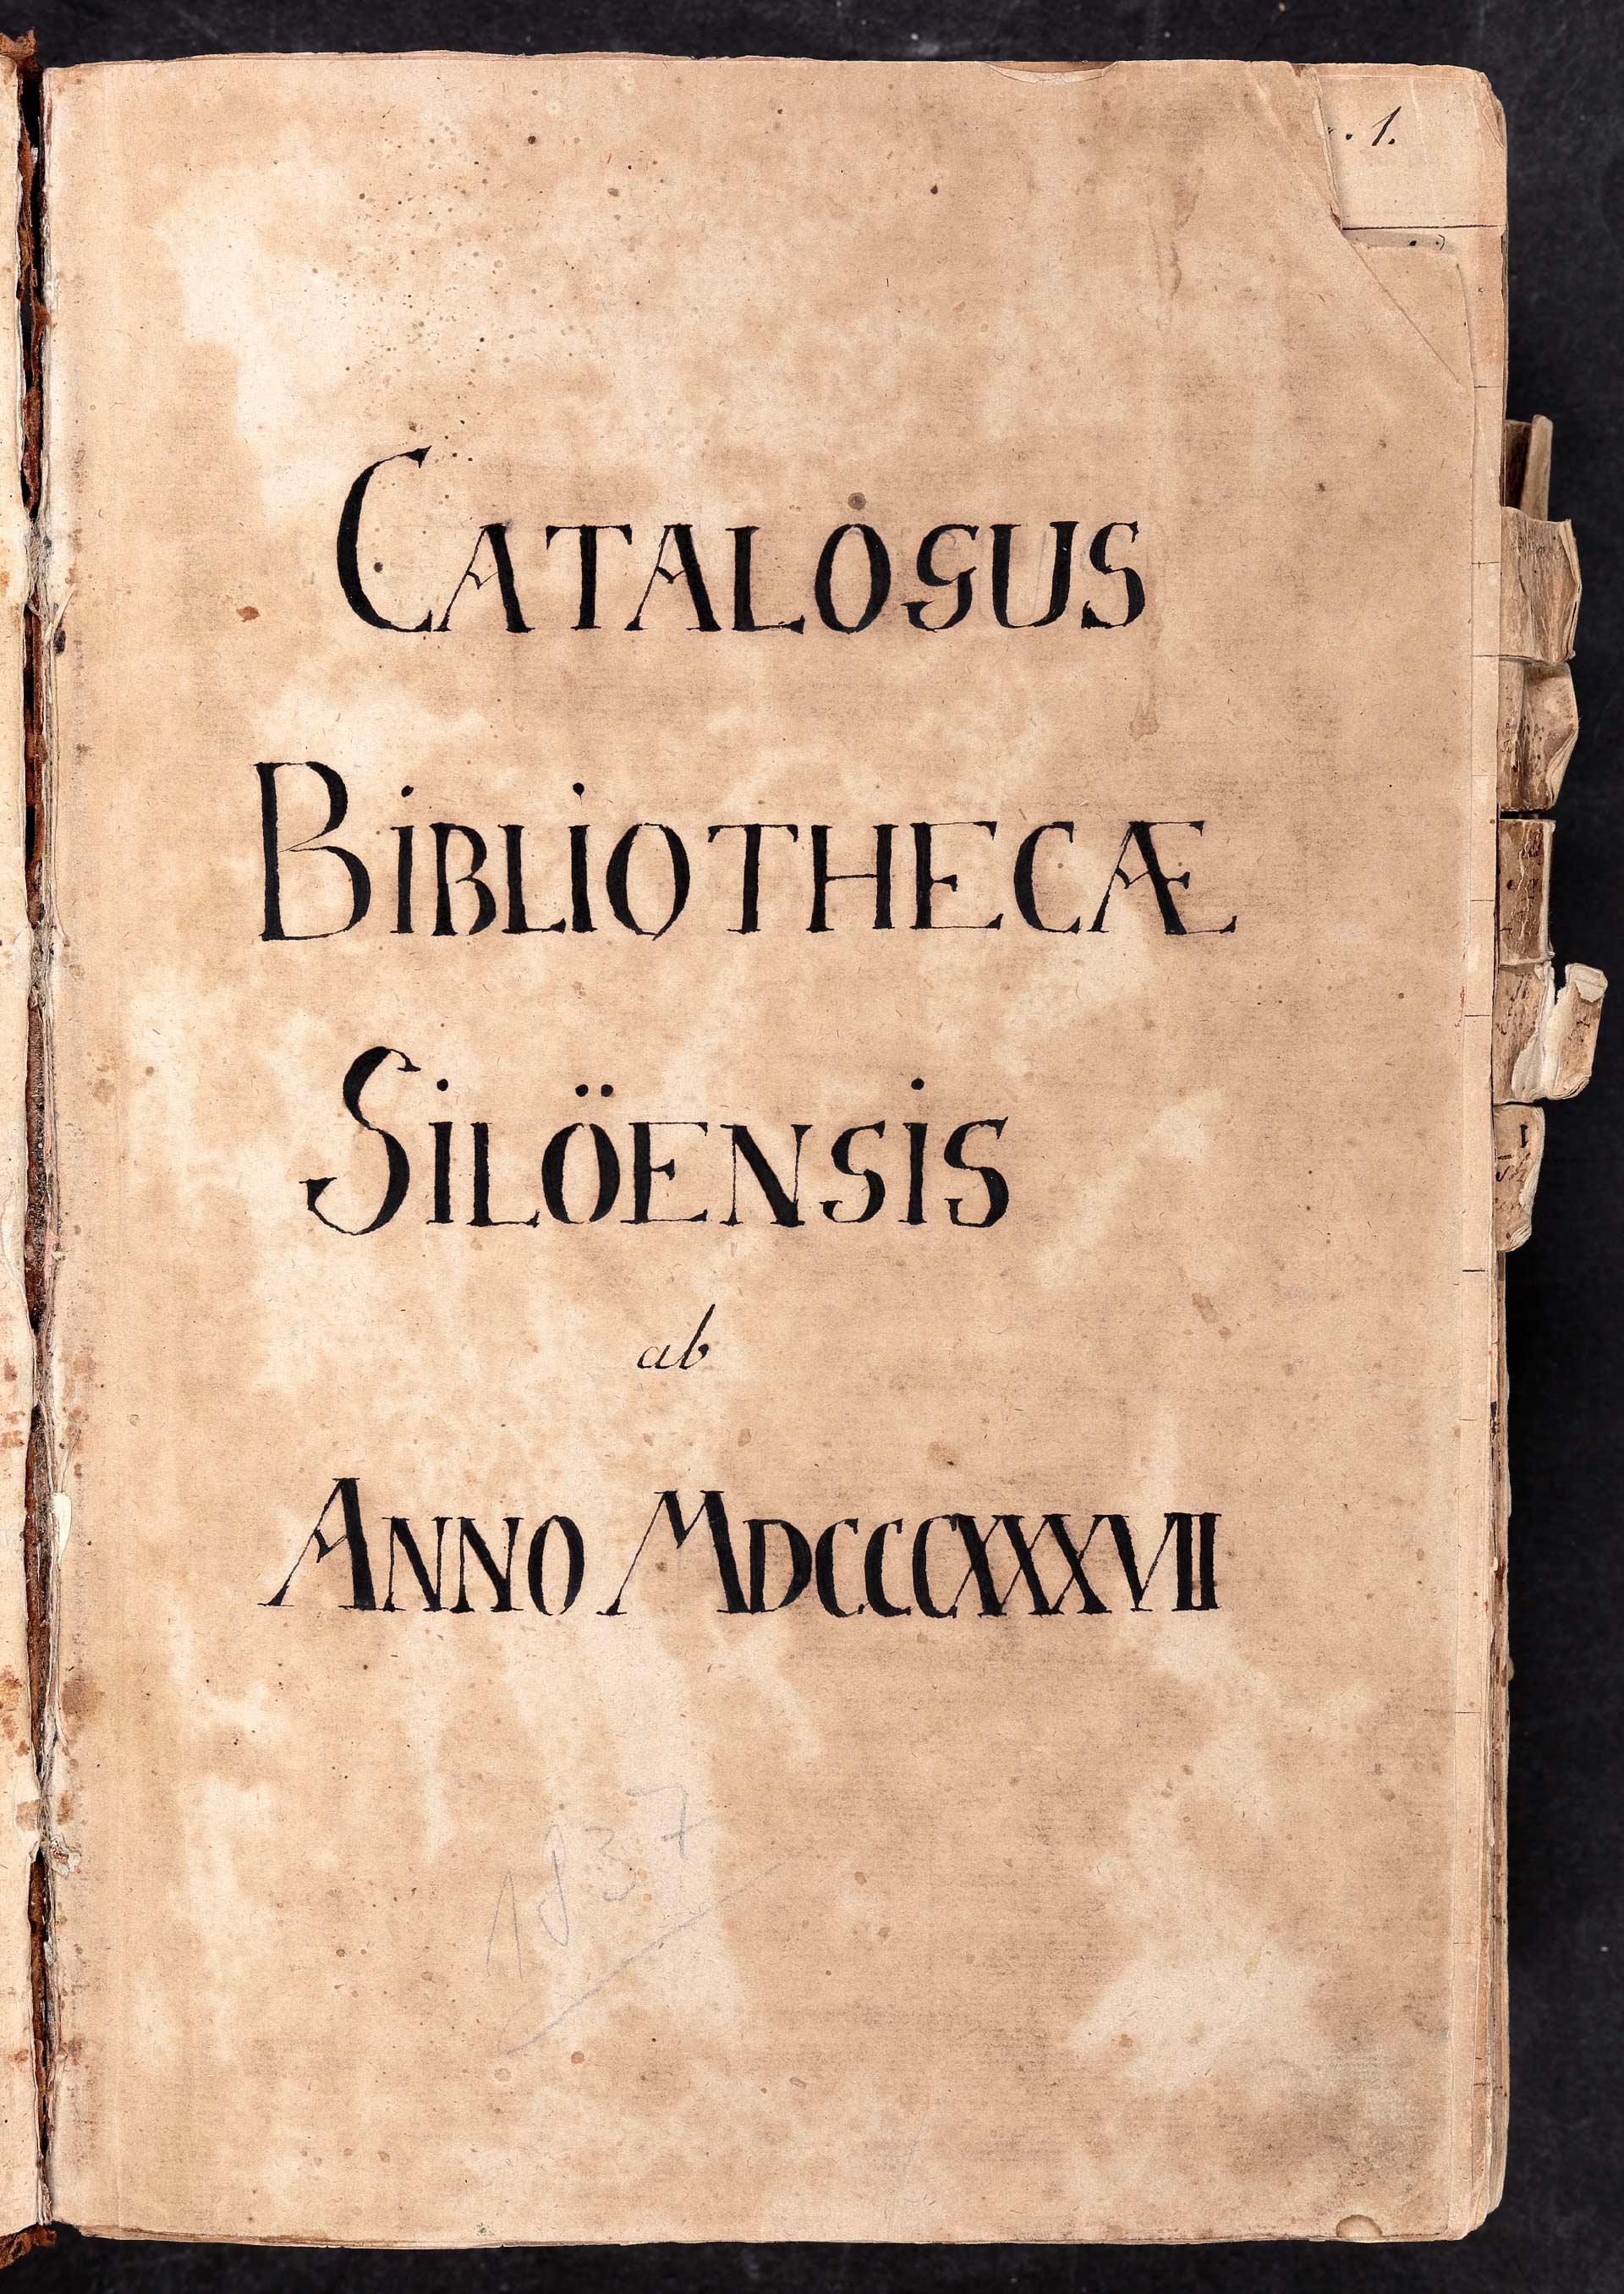 . 1.
CATALOGUS
BiBLiOTHECÆ
SiLÖENSiS
ab
ANNO MDCCCXXXVII
1837